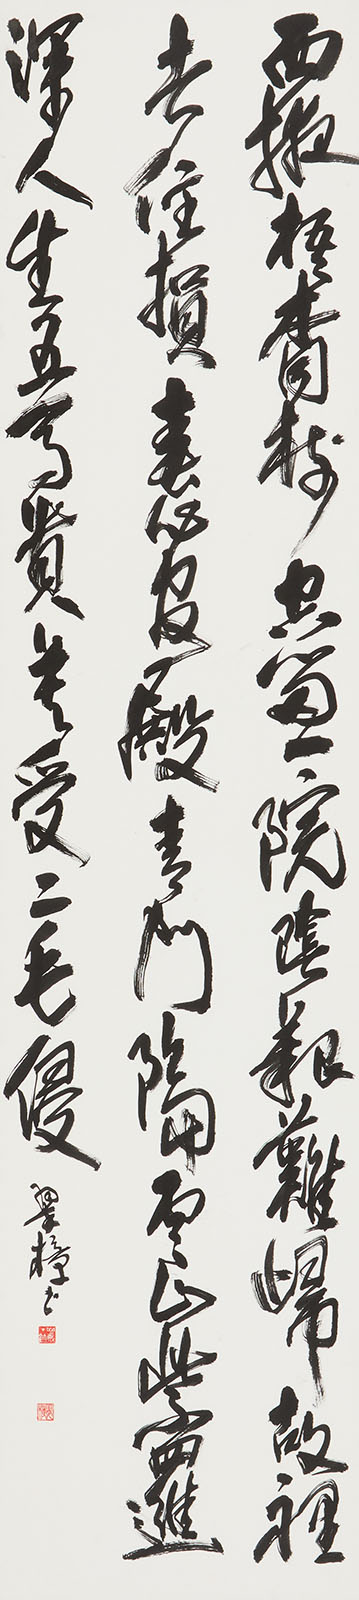 西掖梧桐樹空留一院陰艱難歸故里
去住損春心宮殿青門隔雲山紫邏
深人生五馬貴莫受二毛侵
翠樟書